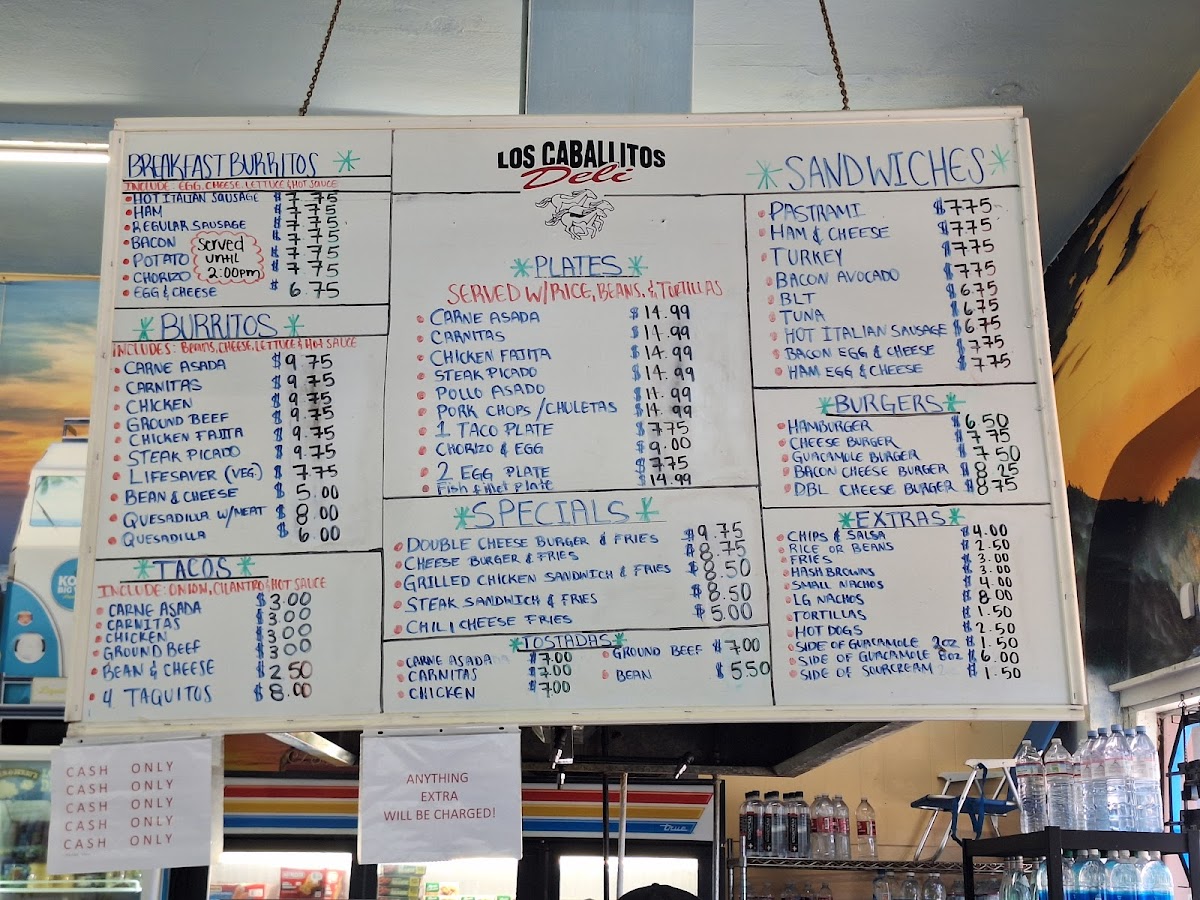 BREAKFAST BURRITOS
INCLUDE: EGG, CHEESE, LETTUCE & HOT SAUCE
HOT ITALIAN SAUSAGE $7.75
HAM $7.75
REGULAR SAUSAGE $7.75
BACON $7.75
POTATO $7.75
CHORIZO $7.75
EGG & CHEESE $6.75
Served
UNTIL
2:00pm
BURRITOS
INCLUDES: BEANS, CHEESE, LETTUCE & HOT SAUCE
CARNE ASADA $9.75
CARNITAS $9.75
CHICKEN $9.75
GROUND BEEF $9.75
CHICKEN FAJITA $9.75
STEAK PICADO $9.75
LIFESAVER (VEG.) $7.75
BEAN & CHEESE $5.00
QUESADILLA W/MEAT $8.00
QUESADILLA $6.00
TACOS
INCLUDE: ONION, CILANTRO & HOT SAUCE
CARNE ASADA $3.00
CARNITAS $3.00
CHICKEN $3.00
GROUND BEEF $3.00
BEAN & CHEESE $2.50
4 TAQUITOS $8.00
LOS CABALLITOS
Deli
PLATES
SERVED W/RICE, BEANS, & TORTILLAS
CARNE ASADA $14.99
CARNITAS $14.99
CHICKEN FAJITA $14.99
STEAK PICADO $14.99
POLLO ASADO $14.99
PORK CHOPS / CHULETAS $14.99
1 TACO PLATE $7.75
CHORIZO & EGG $9.00
2 EGG PLATE $7.75
Fish fillet Plate $14.99
SPECIALS
DOUBLE CHEESE BURGER & FRIES $9.75
CHEESE BURGER & FRIES $8.75
GRILLED CHICKEN SANDWICH & FRIES $8.50
STEAK SANDWICH & FRIES $8.50
CHILI CHEESE FRIES $5.00
TOSTADAS
CARNE ASADA $7.00
CARNITAS $7.00
CHICKEN $7.00
GROUND BEEF $7.00
BEAN $5.50
SANDWICHES
PASTRAMI $7.75
HAM & CHEESE $7.75
TURKEY $7.75
BACON AVOCADO $7.75
BLT $6.75
TUNA $6.75
HOT ITALIAN SAUSAGE $6.75
BACON EGG & CHEESE $7.75
HAM EGG & CHEESE $7.75
BURGERS
HAMBURGER $6.50
CHEESE BURGER $7.75
GUACAMOLE BURGER $7.50
BACON CHEESE BURGER $8.25
DBL CHEESE BURGER $8.75
EXTRAS
CHIPS & SALSA $4.00
RICE OR BEANS $2.50
FRIES $3.00
HASHBROWNS $3.00
SMALL NACHOS $4.00
LG NACHOS $8.00
TORTILLAS $1.50
HOT DOGS $2.50
SIDE OF GUACAMOLE 2oz $1.50
SIDE OF GUACAMOLE 8oz $6.00
SIDE OF SOURCREAM 2oz $1.50
CASH ONLY
CASH ONLY
CASH ONLY
CASH ONLY
CASH ONLY
ANYTHING
EXTRA
WILL BE CHARGED!
true